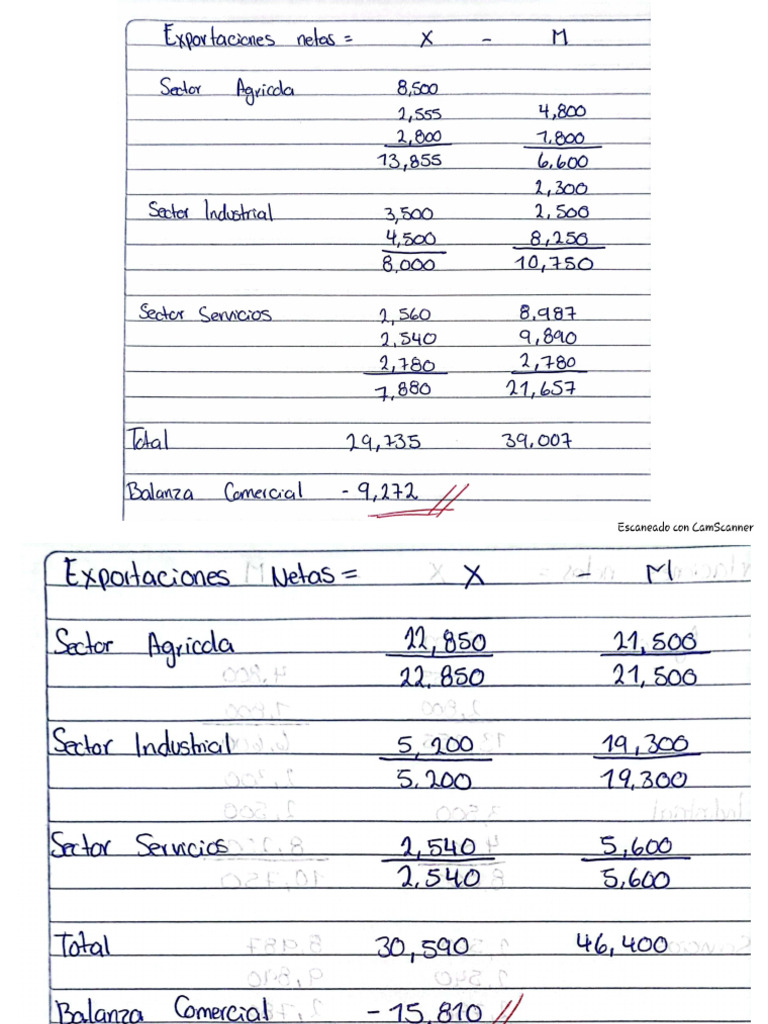 Exportaciones netas = X - M
Sector Agricola 8,500
2,555 4,800
2,800 1,800
13,855 6,600
2,300
Sector Industrial 3,500 2,500
4,500 8,250
8,000 10,750
Sector Servicios 2,560 8,987
2,540 9,890
2,780 2,780
7,880 21,657
Total 29,735 39,007
Balanza Comercial - 9,272
Escaneado con CamScanner
Exportaciones Netas = X - M
Sector Agricola 22,850 21,500
22,850 21,500
Sector Industrial 5,200 19,300
5,200 19,300
Sector Servicios 2,540 5,600
2,540 5,600
Total 30,590 46,400
Balanza Comercial - 15,810